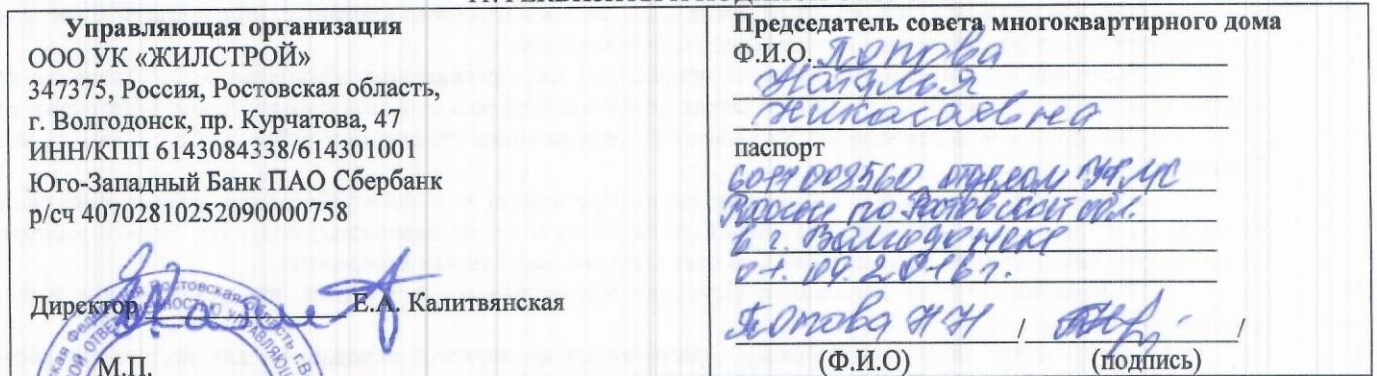 Управляющая организация
ООО УК «ЖИЛСТРОЙ»
347375, Россия, Ростовская область,
г. Волгодонск, пр. Курчатова, 47
ИНН/КПП 6143084338/614301001
Юго-Западный Банк ПАО Сбербанк
р/сч 40702810252090000758
Директор Е.А. Калитвянская
М.П.
Председатель совета многоквартирного дома
Ф.И.О. Попова
Наталья
Николаевна
паспорт
6017008560 отделом УФМС
России по Ростовской обл.
в г. Волгодонске
09.2016 г.
Попова Н Н / /
(Ф.И.О) (подпись)